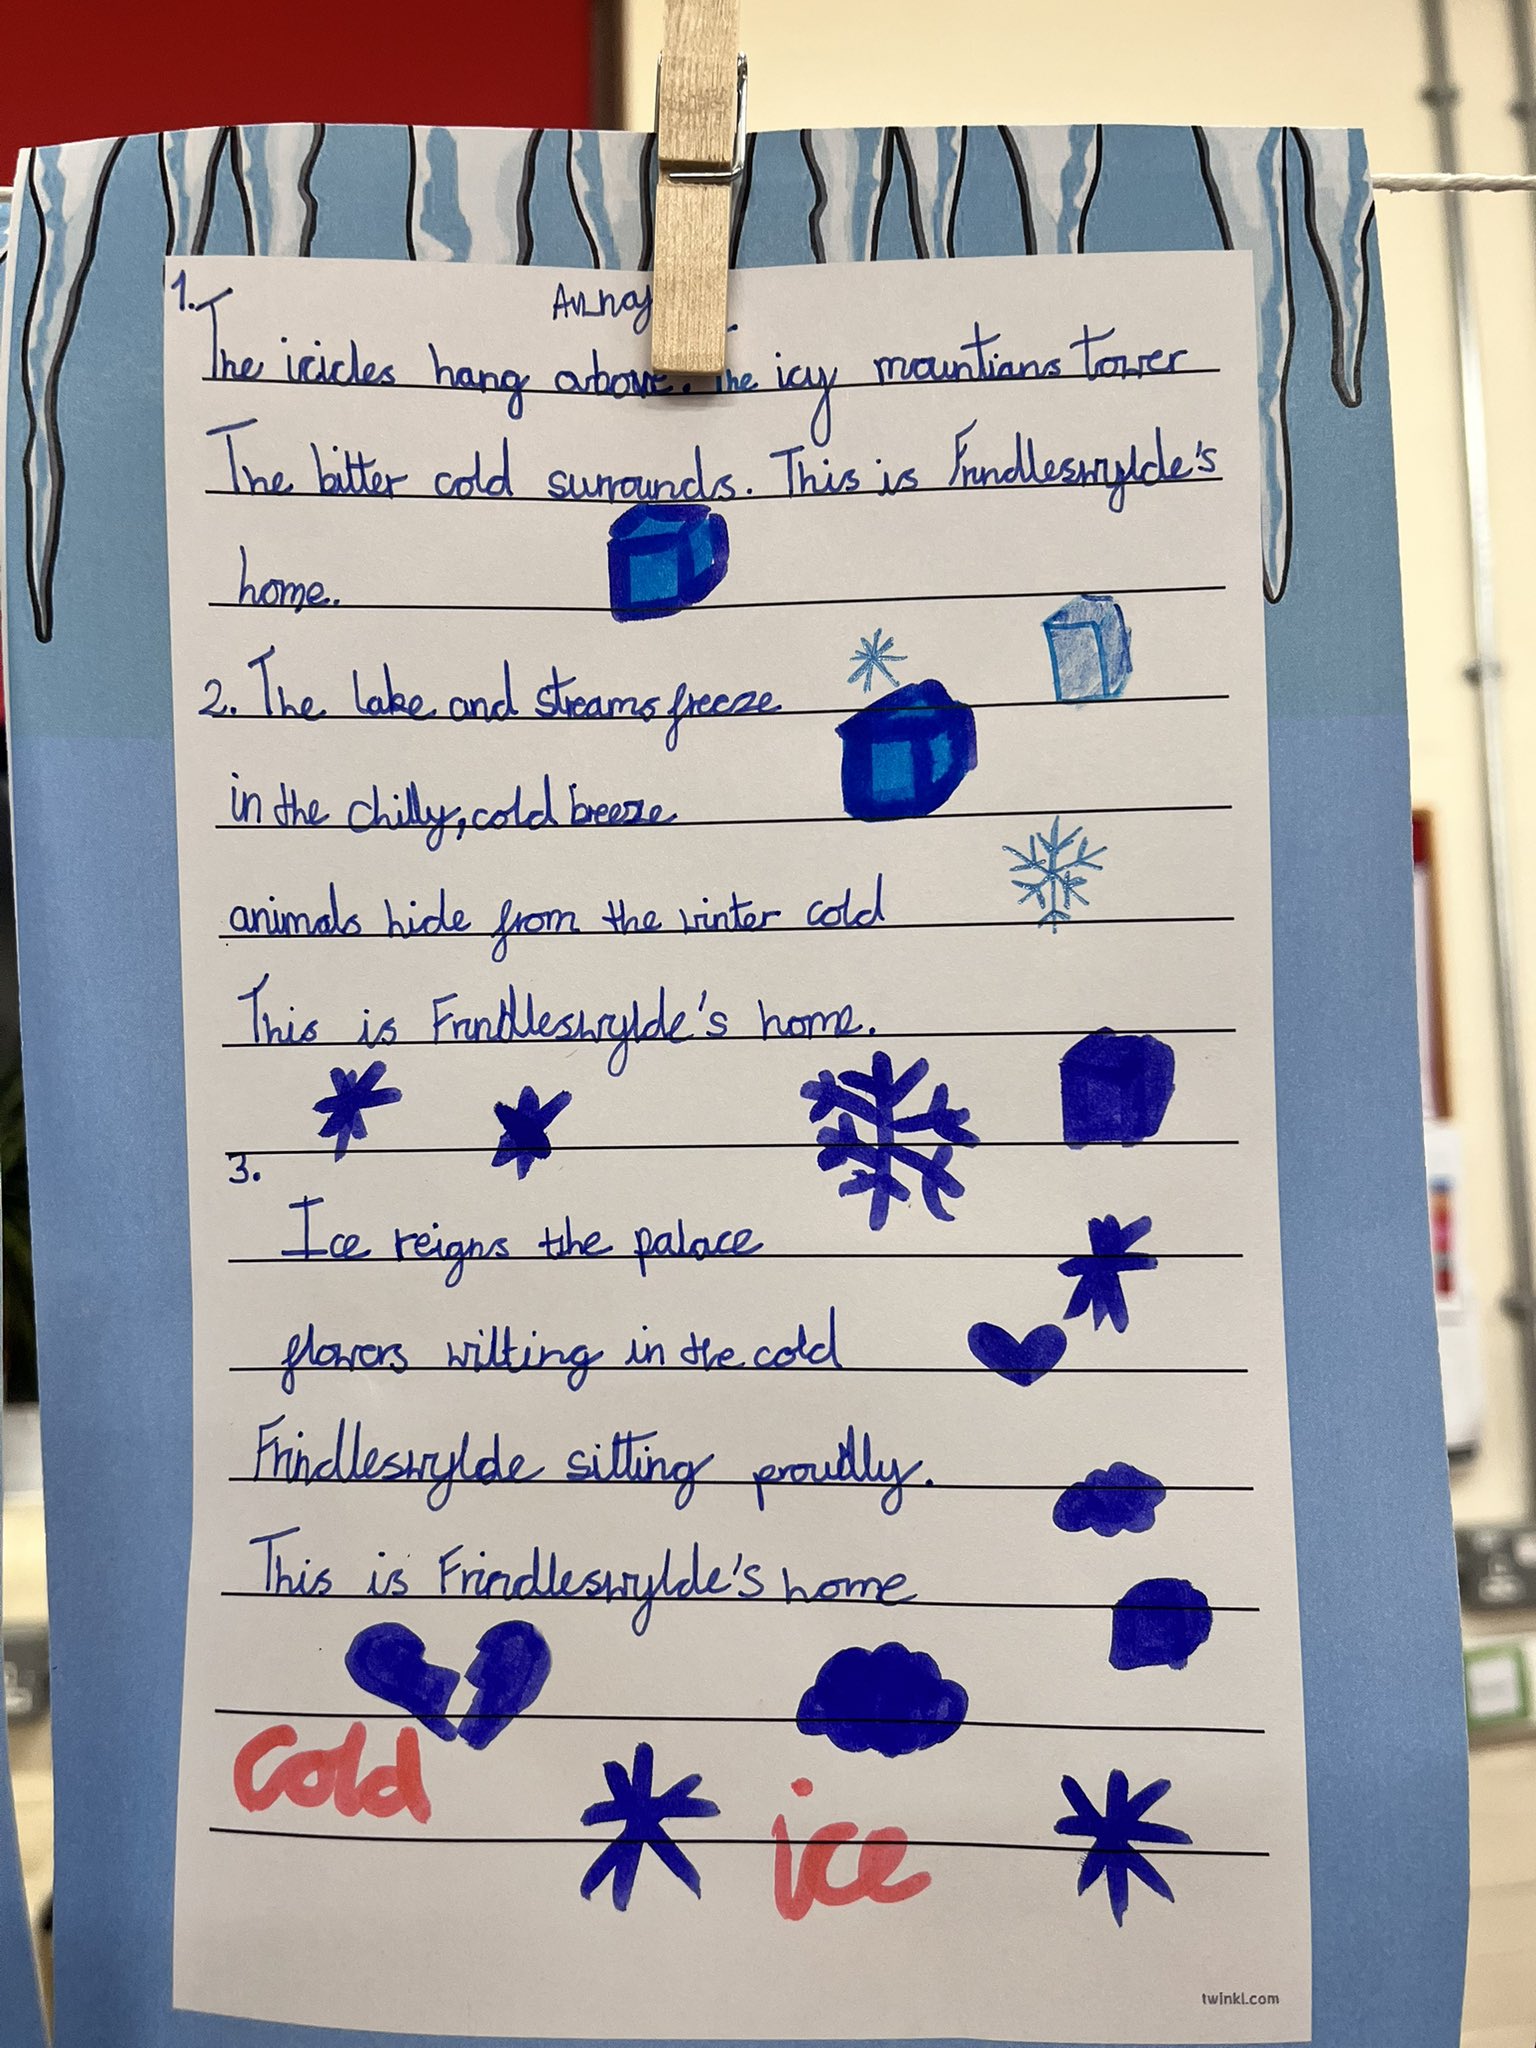 1.
The icicles hang above. The icy mountians tower
The bitter cold surrounds. This is Frindleswylde's
home.
2. The lake and streams freeze
in the chilly, cold breeze
animals hide from the winter cold
This is Frindleswylde's home.
3.
Ice reigns the palace
flowers wilting in the cold
Frindleswylde sitting proudly.
This is Frindleswylde's home
cold
ice
twinkl.com